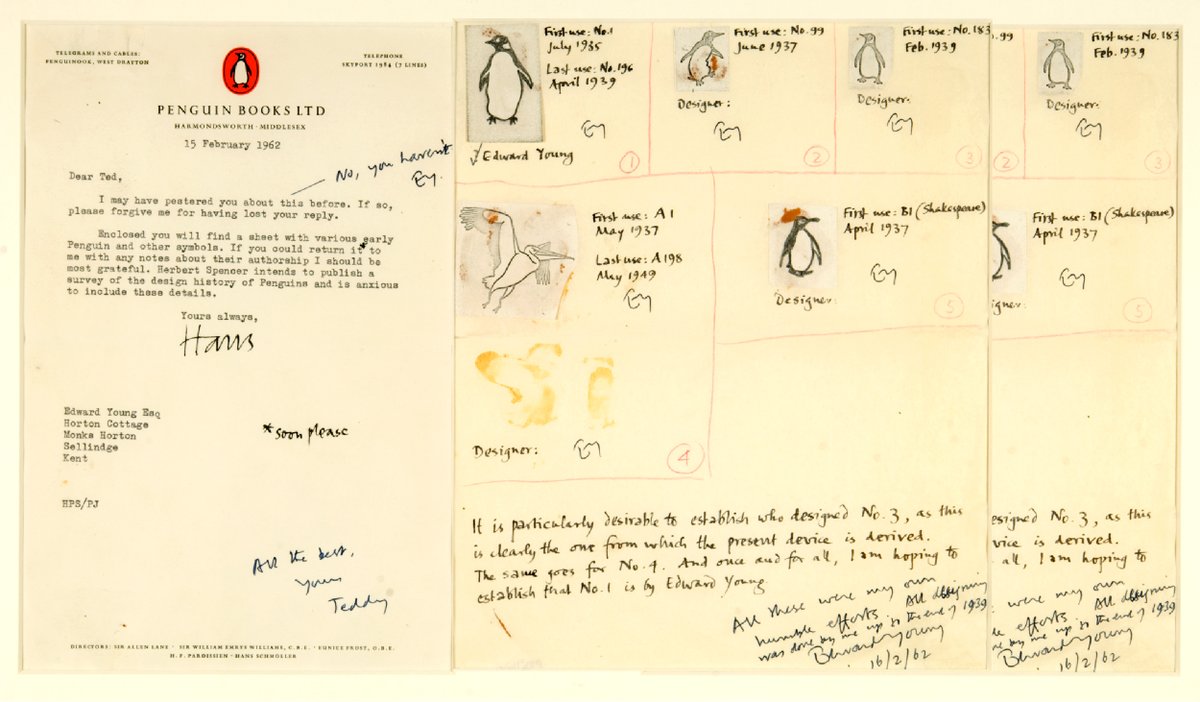 TELEGRAMS AND CABLES:
PENGUINOOK, WEST DRAYTON
TELEPHONE
SKYPORT 1984 (7 LINES)
PENGUIN BOOKS LTD
HARMONDSWORTH · MIDDLESEX
15 February 1962
No, you haven't
EY.
Dear Ted,
I may have pestered you about this before. If so,
please forgive me for having lost your reply.
Enclosed you will find a sheet with various early
Penguin and other symbols. If you could return it to
me with any notes about their authorship I should be
most grateful. Herbert Spencer intends to publish a
survey of the design history of Penguins and is anxious
to include these details.
Yours always,
Hans
Edward Young Esq
Horton Cottage
Monks Horton
Sellindge
Kent
*soon please
HPS/PJ
All the best,
Yours
Teddy
DIRECTORS: SIR ALLEN LANE · SIR WILLIAM EMRYS WILLIAMS, C.B.E. · EUNICE FROST, O.B.E.
H. F. PAROISSIEN · HANS SCHMOLLER
First use: No.1
July 1935
Last use: No.196
April 1939
EY
Edward Young
1
First use: No.99
June 1937
Designer:
EY
2
First use: No.183
Feb. 1939
Designer:
EY
3
First use: A1
May 1937
Last use: A198
May 1949
EY
Designer:
EY
4
First use: B1 (Shakespeare)
April 1937
EY
Designer:
5
It is particularly desirable to establish who designed No. 3, as this
is clearly the one from which the present device is derived.
The same goes for No. 4. And once and for all, I am hoping to
establish that No. 1 is by Edward Young
All these were my own
humble efforts. All designing
was done by me up to the end of 1939
Edward Young
16/2/62
.99
2
First use: No.183
Feb. 1939
Designer:
EY
3
First use: B1 (Shakespeare)
April 1937
EY
igner:
5
esigned No. 3, as this
vice is derived.
all, I am hoping to
were my own
le efforts. All designing
ne by me up to the end of 1939
Edward Young
16/2/62